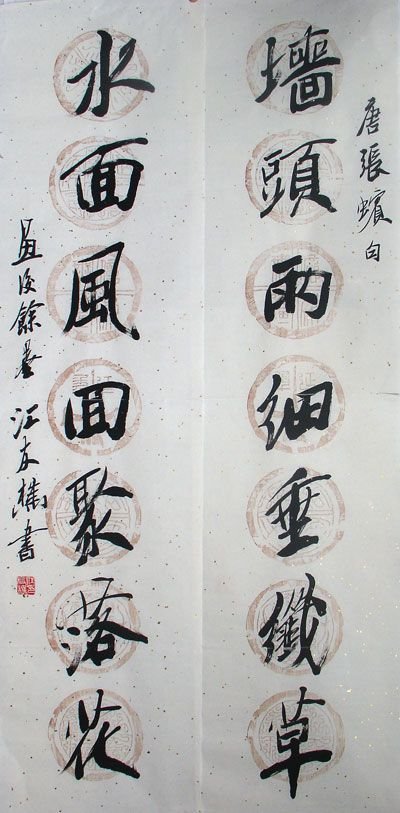 唐張蠙句
墻頭雨細垂纖草
水面風回聚落花
江友樵書